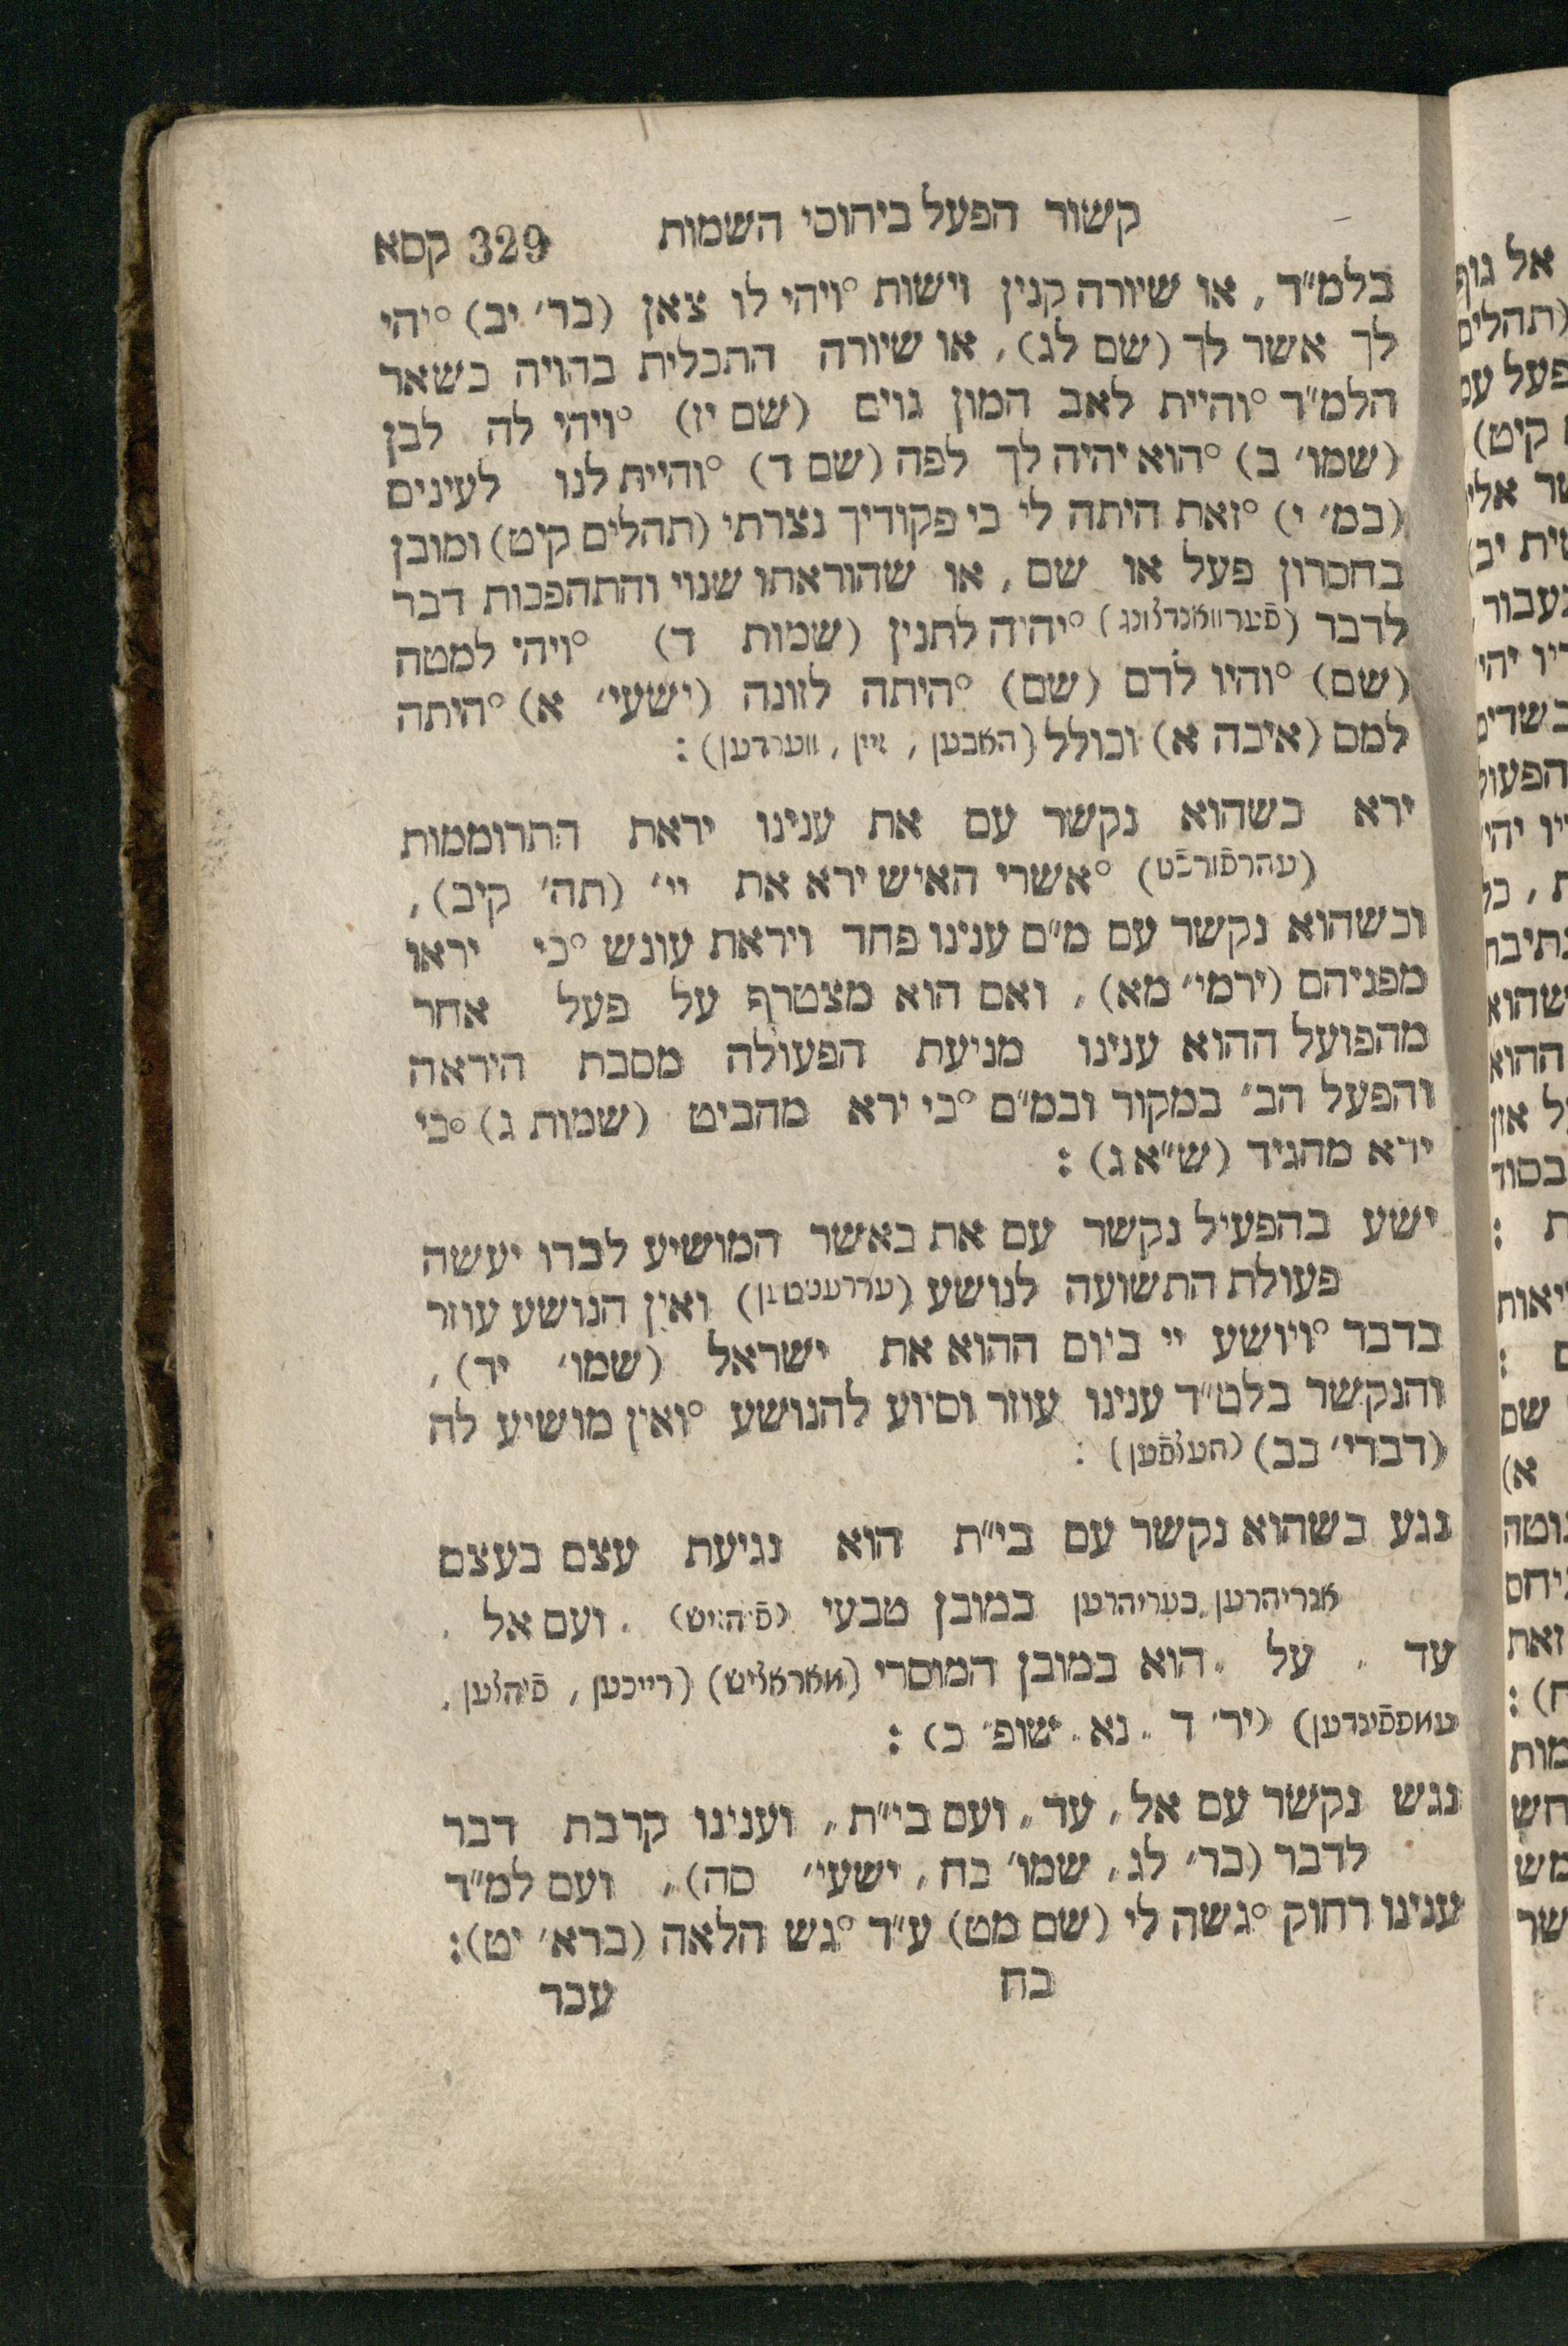 קשור הפעל ביהוסי השמות 329 קסא
בלמ״ד, או שיורה קנין וישות °ויהי לו צאן (בר׳ יב) °יהי
לך אשר לך (שם לג), או שיורה התכלית בהויה כשאר
הלמ״ד °והיית לאב המון גוים (שם יז) °ויהי לה לבן
(שמו׳ ב) °הוא יהיה לך לפה (שם ד) °והיית לנו לעינים
(במ׳ י) °זאת היתה לי כי פקודיך נצרתי (תהלים קיט) ומובן
בחסרון פעל או שם, או שהוראתו שנוי והתהפכות דבר
לדבר (פֿערוואנדלונג) °יהיה לתנין (שמות ד) °ויהי למטה
(שם) °והיו לדם (שם) °היתה לזונה (ישעי׳ א) °היתה
למס (איכה א) וכולל (האבען, זיין, ווערדען):
ירא כשהוא נקשר עם את ענינו יראת התרוממות
(עהרפֿורכֿט) °אשרי האיש ירא את יי׳ (תה׳ קיב),
וכשהוא נקשר עם מ״ם ענינו פחד ויראת עונש °כי יראו
מפניהם (ירמי׳ מא), ואם הוא מצטרף על פעל אחר
מהפועל ההוא ענינו מניעת הפעולה מסבת היראה
והפעל הב׳ במקור ובמ״ם °כי ירא מהביט (שמות ג) °כי
ירא מהגיד (ש״א ג):
ישע בהפעיל נקשר עם את כאשר המושיע לבדו יעשה
פעולת התשועה לנושע ואין הנושע עוזר
בדבר °ויושע יי ביום ההוא את ישראל (שמו׳ יד),
והנקשר בלמ״ד ענינו עוזר וסיוע להנושע °ואין מושיע לה
(דברי׳ כב) (העלפֿען):
נגע כשהוא נקשר עם בי״ת הוא נגיעת עצם בעצם
אנריהרען, בעריהרען במובן טבעי. ועם אל,
עד, על, הוא במובן המוסרי (מאראליש) (רייכען, פֿיהלען,
עמפפֿינדען) (יר׳ ד, נא, שופ׳ כ):
נגש נקשר עם אל, עד, ועם בי״ת, וענינו קרבת דבר
לדבר (בר׳ לג, שמו׳ כח, ישעי׳ סה), ועם למ״ד
ענינו רחוק °גשה לי (שם מט) ע״ד °גש הלאה (ברא׳ יט):
כח עבר
אל גוף
(תהלים
פעל עם
קיט)
יהי
הפעול
יהי
שהוא
ההוא
בסוד
שם
א)
זאת